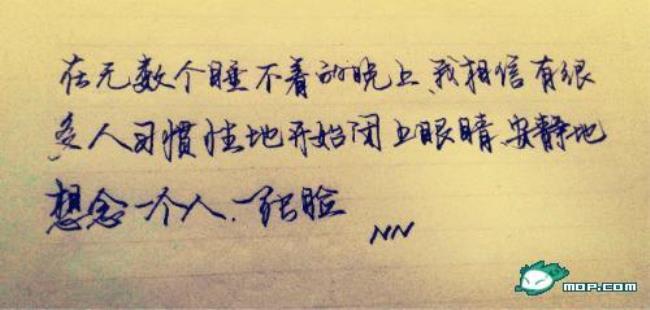 在无数个睡不着的晚上、我相信有很
多人习惯性地开始闭上眼睛、安静地
想念一个人、一张脸
NN
MOP.COM